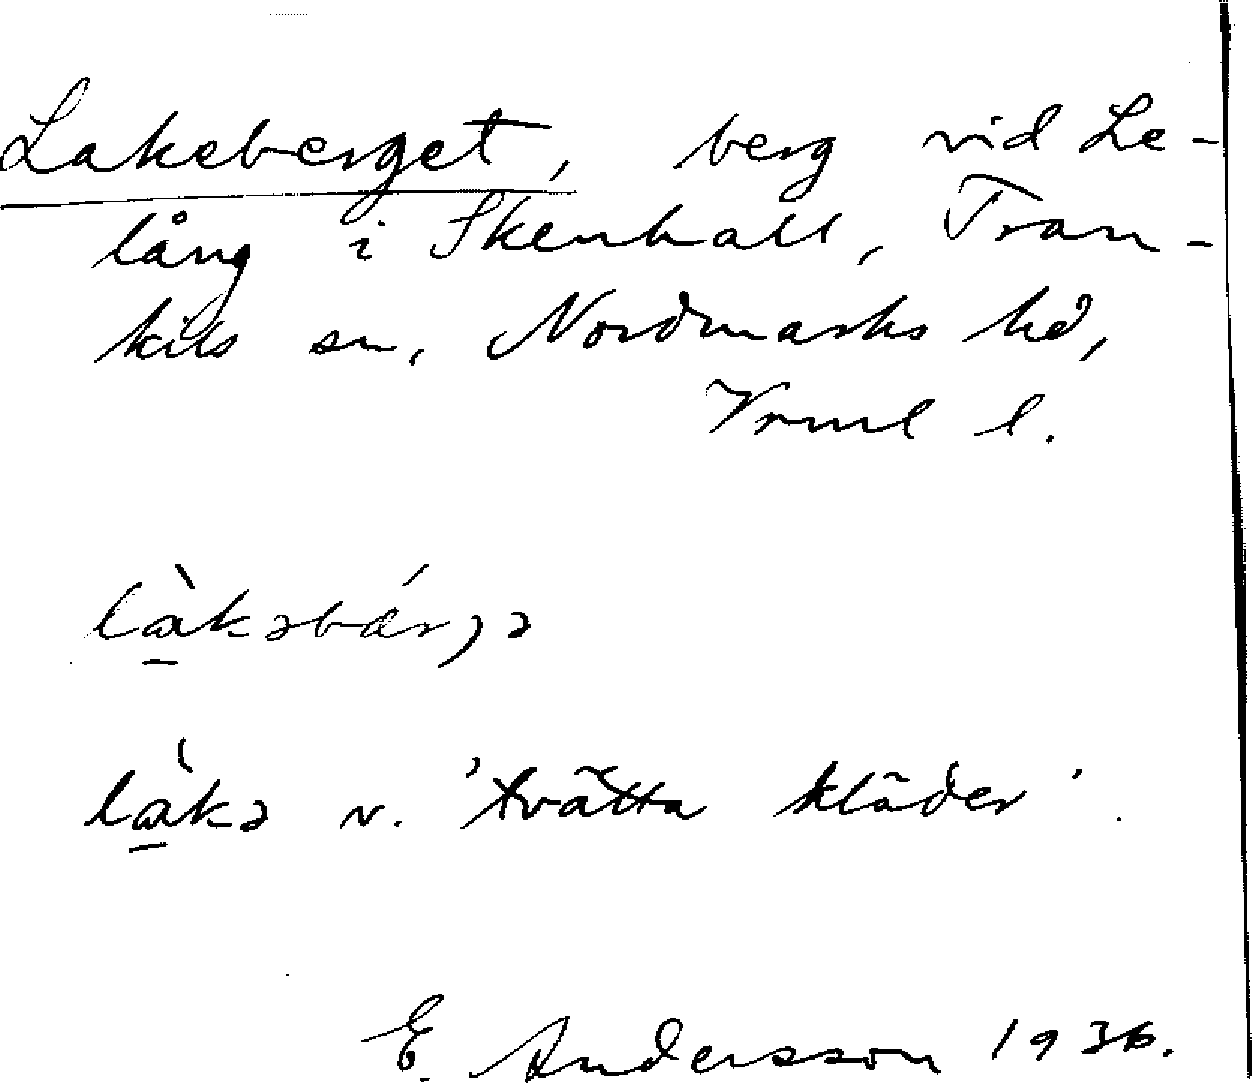 Lakeberget, berg vid Le-
lång i Skenhall, Tran-
kils sn, Nordmarks hd,
Vrml l.
là̱kəbǽrjə
là̱kə v. 'tvätta kläder'.
E. Andersson 1936.